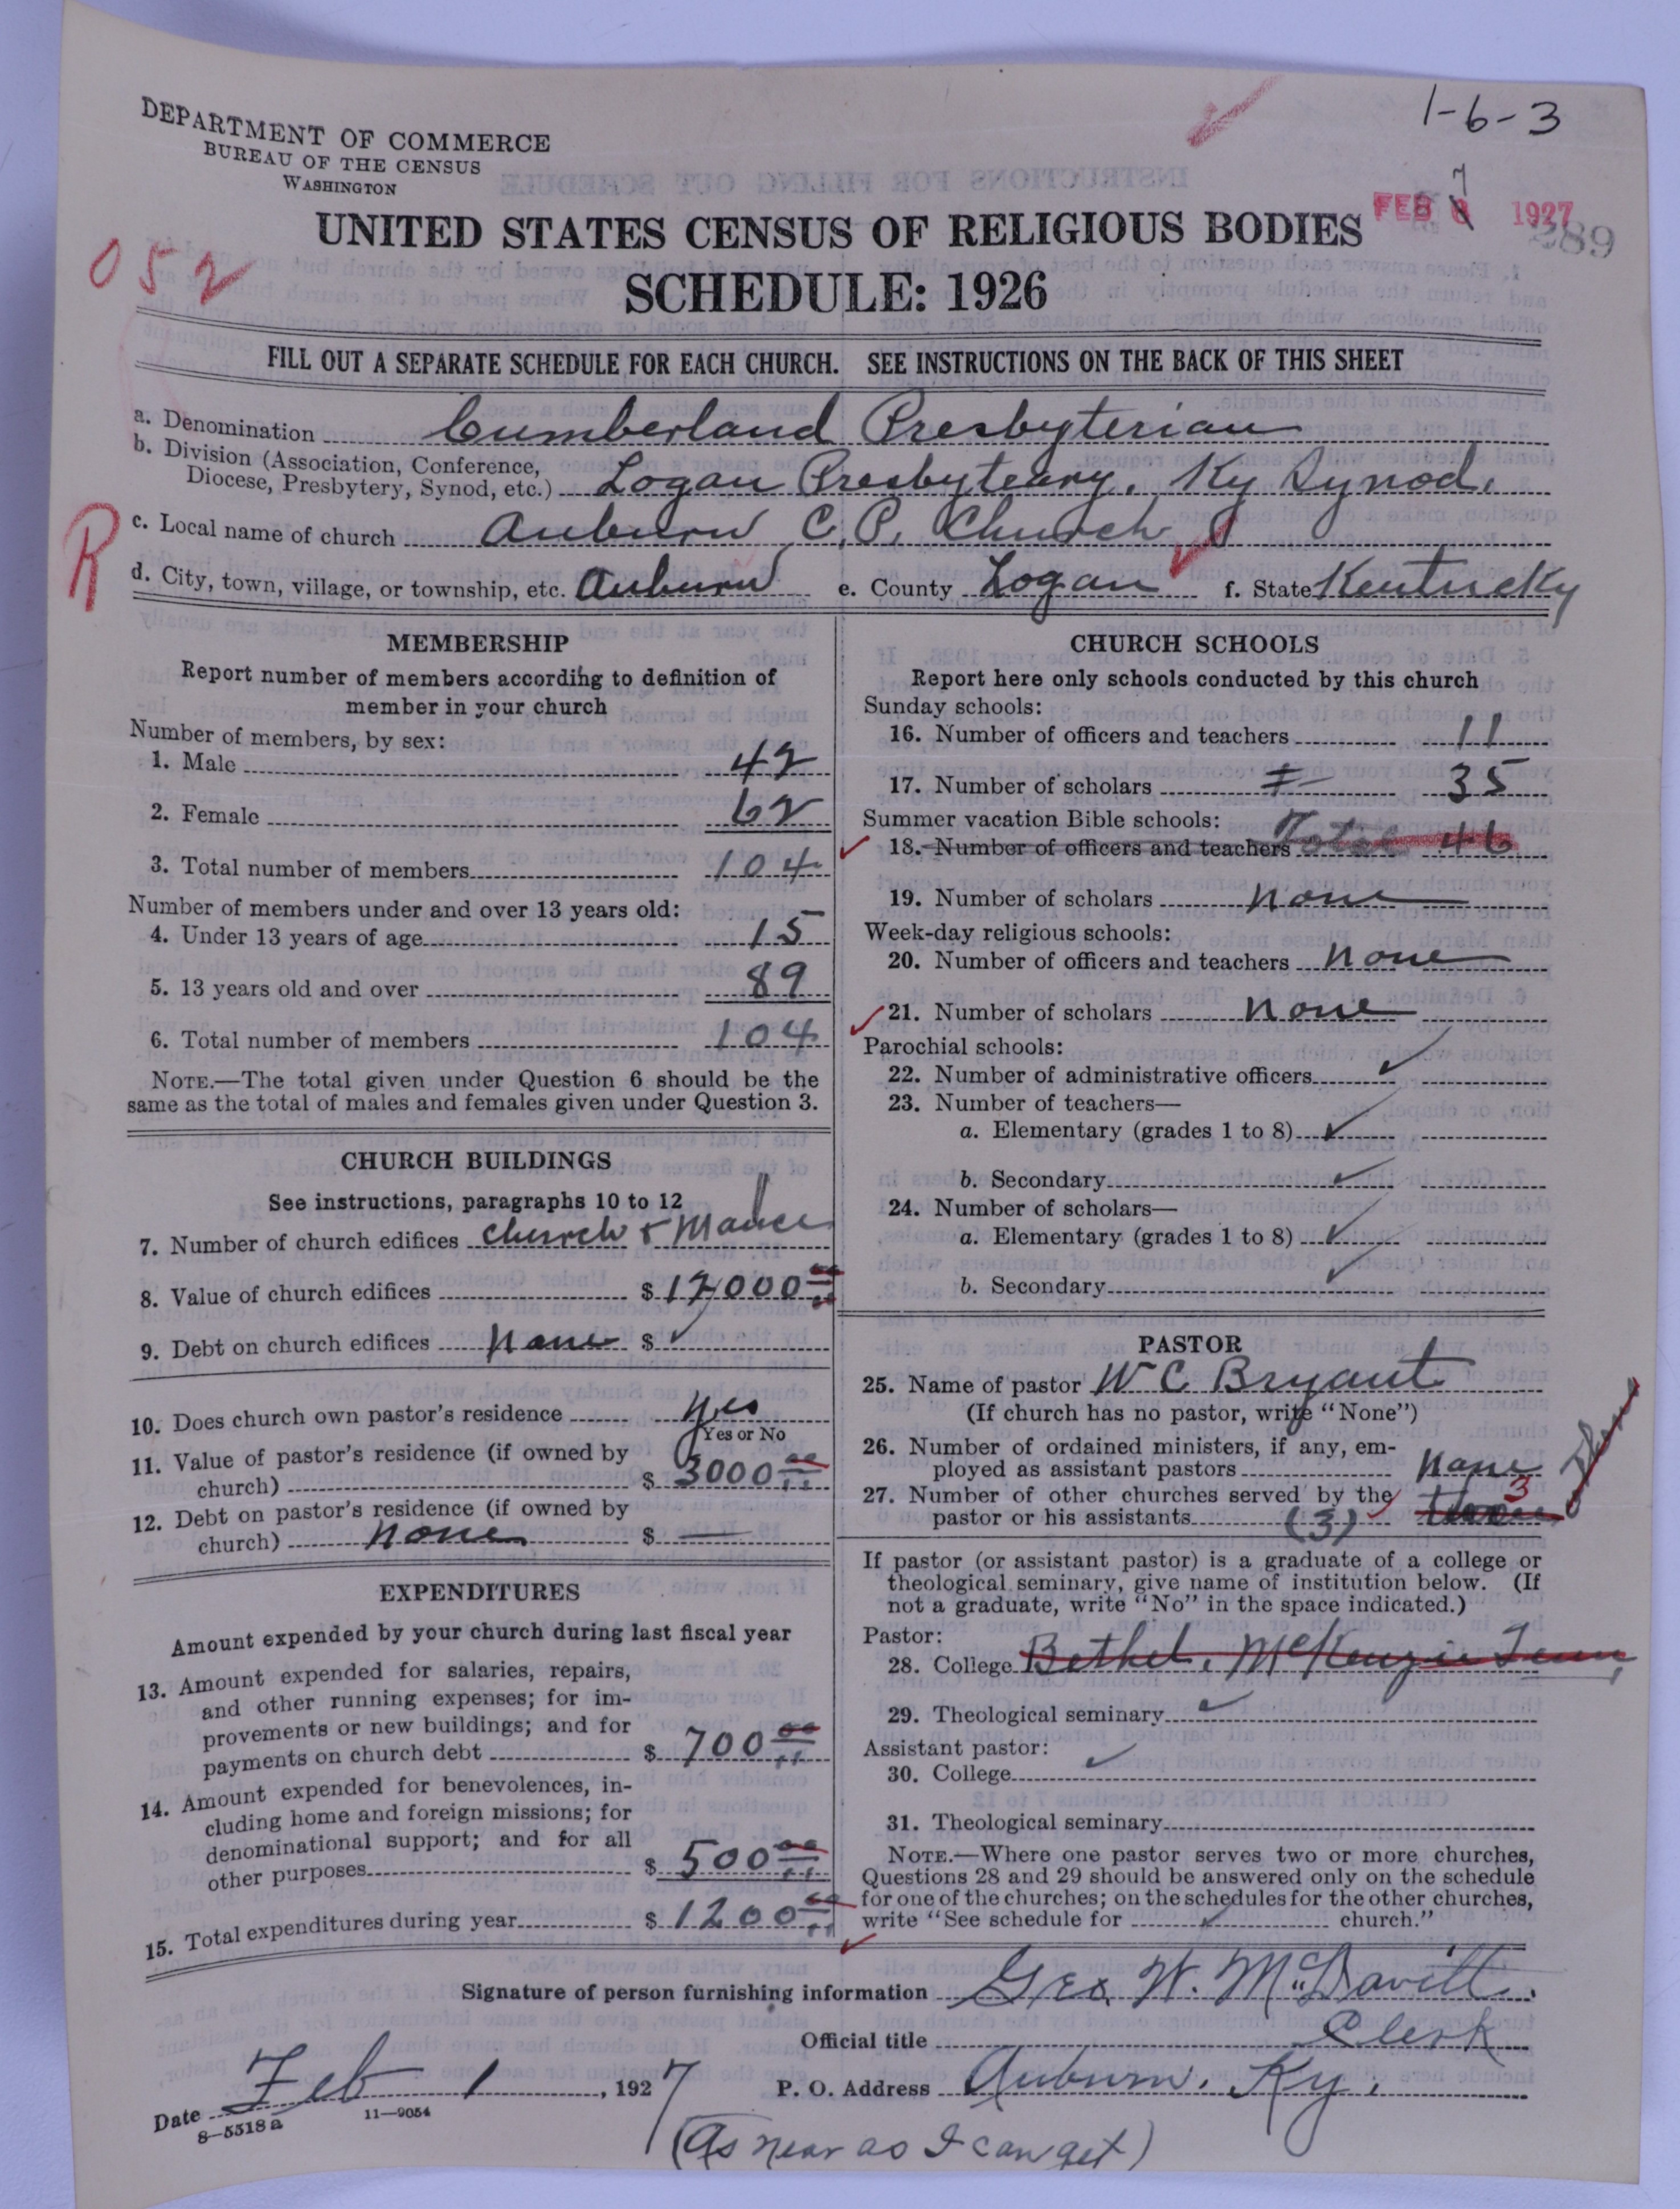 1-6-3
DEPARTMENT OF COMMERCE
BUREAU OF THE CENSUS
WASHINGTON
FEB 8 7 1927
289
UNITED STATES CENSUS OF RELIGIOUS BODIES
SCHEDULE: 1926
052
FILL OUT A SEPARATE SCHEDULE FOR EACH CHURCH. SEE INSTRUCTIONS ON THE BACK OF THIS SHEET
a. Denomination Cumberland Presbyterian
b. Division (Association, Conference,
Diocese, Presbytery, Synod, etc.) Logan Presbyteary. Ky Synod.
R
c. Local name of church Auburn C.P. Church
d. City, town, village, or township, etc. Auburn e. County Logan f. State Kentucky
MEMBERSHIP
Report number of members according to definition of
member in your church
Number of members, by sex:
1. Male 42
2. Female 62
3. Total number of members 104
Number of members under and over 13 years old:
4. Under 13 years of age 15
5. 13 years old and over 89
6. Total number of members 104
NOTE.—The total given under Question 6 should be the
same as the total of males and females given under Question 3.
CHURCH BUILDINGS
See instructions, paragraphs 10 to 12
7. Number of church edifices Church & Mance
8. Value of church edifices $ 12000 00
9. Debt on church edifices None $
10. Does church own pastor's residence yes
Yes or No
11. Value of pastor's residence (if owned by
church) $ 3000 00
12. Debt on pastor's residence (if owned by
church) none $
EXPENDITURES
Amount expended by your church during last fiscal year
13. Amount expended for salaries, repairs,
and other running expenses; for im-
provements or new buildings; and for
payments on church debt $ 700 00
14. Amount expended for benevolences, in-
cluding home and foreign missions; for
denominational support; and for all
other purposes $ 500 00
15. Total expenditures during year $ 1200 00
CHURCH SCHOOLS
Report here only schools conducted by this church
Sunday schools:
16. Number of officers and teachers 11
17. Number of scholars 35
Summer vacation Bible schools:
18. Number of officers and teachers Total 46
19. Number of scholars none
Week-day religious schools:
20. Number of officers and teachers none
21. Number of scholars none
Parochial schools:
22. Number of administrative officers
23. Number of teachers—
a. Elementary (grades 1 to 8)
b. Secondary
24. Number of scholars—
a. Elementary (grades 1 to 8)
b. Secondary
PASTOR
25. Name of pastor W C Bryant
(If church has no pastor, write "None")
26. Number of ordained ministers, if any, em-
ployed as assistant pastors None
27. Number of other churches served by the
pastor or his assistants (3) three 3
If pastor (or assistant pastor) is a graduate of a college or
theological seminary, give name of institution below. (If
not a graduate, write "No" in the space indicated.)
Pastor:
28. College Bethel, McKenzie Tenn
29. Theological seminary
Assistant pastor:
30. College
31. Theological seminary
NOTE.—Where one pastor serves two or more churches,
Questions 28 and 29 should be answered only on the schedule
for one of the churches; on the schedules for the other churches,
write "See schedule for church."
Signature of person furnishing information Geo. W. McDavitt.
Official title Clerk
Date Feb 1, 1927 P. O. Address Auburn. Ky.
8—5518a 11—9054
(As near as I can get)